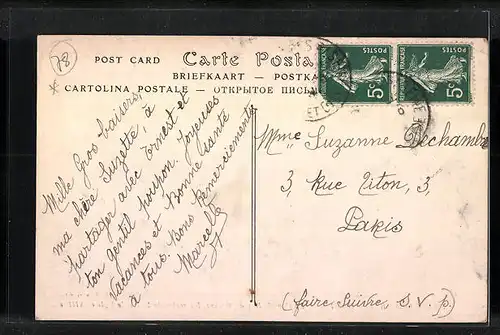 78
POST CARD Carte Posta
BRIEFKAART — POSTKA
* CARTOLINA POSTALE — ОТКРЫТОЕ ПИСЬМ
POSTES
5c
POSTES
5c
Mille Gros baisers
ma chère Suzette, à
partager avec Ernest et
ton gentil poupon. Joyeuses
Vacances et Bonne Santé
à tous. Bons Remerciements
Marcelle
Mme Suzanne Dechambre
3, Rue Titon, 3,
Paris
(faire Suivre, S. V. p.)